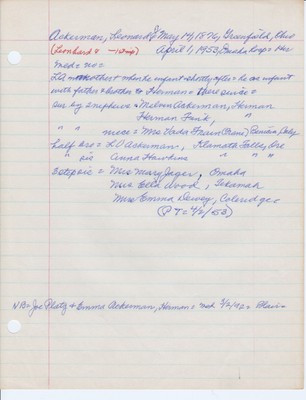 Ackerman, Leonard J May 14, 1876, Greenfield, Ohio
(Leonhard & April 1, 1953, Omaha hosp = Her
med = no =
LA = mother + when he infant = shortly after = he came infant
with father & brother to Herman = there since =
sur by 2 nephews = Melvin Ackerman, Herman
Herman Fink, "
" " niece = Mrs Verda Train (Prem)
half bro = L O Ackerman, Klamata Falls, Ore
" sis Anna Hawkins " "
step sis = Mrs Mary Jager, Omaha
Mrs Etta Wood, Tekamah
Mrs Emma Dewey, Coleridge
(PT = 4/2/53)
NB = Joe Platz & Emma Ackerman, Herman = med 2/2/92 = Blair =